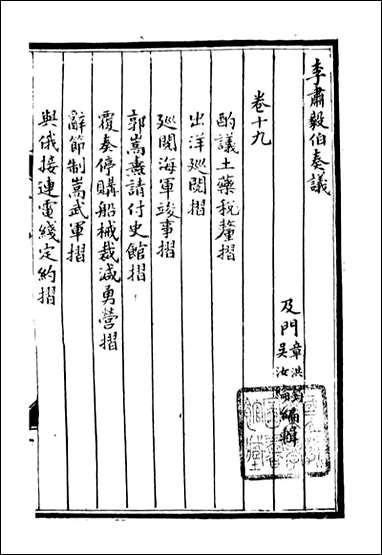 李肅毅伯奏議
及門章洪鈞
吳汝綸編輯
卷十九
酌議土藥稅釐摺
出洋巡閱摺
巡閱海軍竣事摺
郭嵩燾請付史館摺
覆奏停購船械裁減勇營摺
辭節制嵩武軍摺
與俄接連電綫定約摺